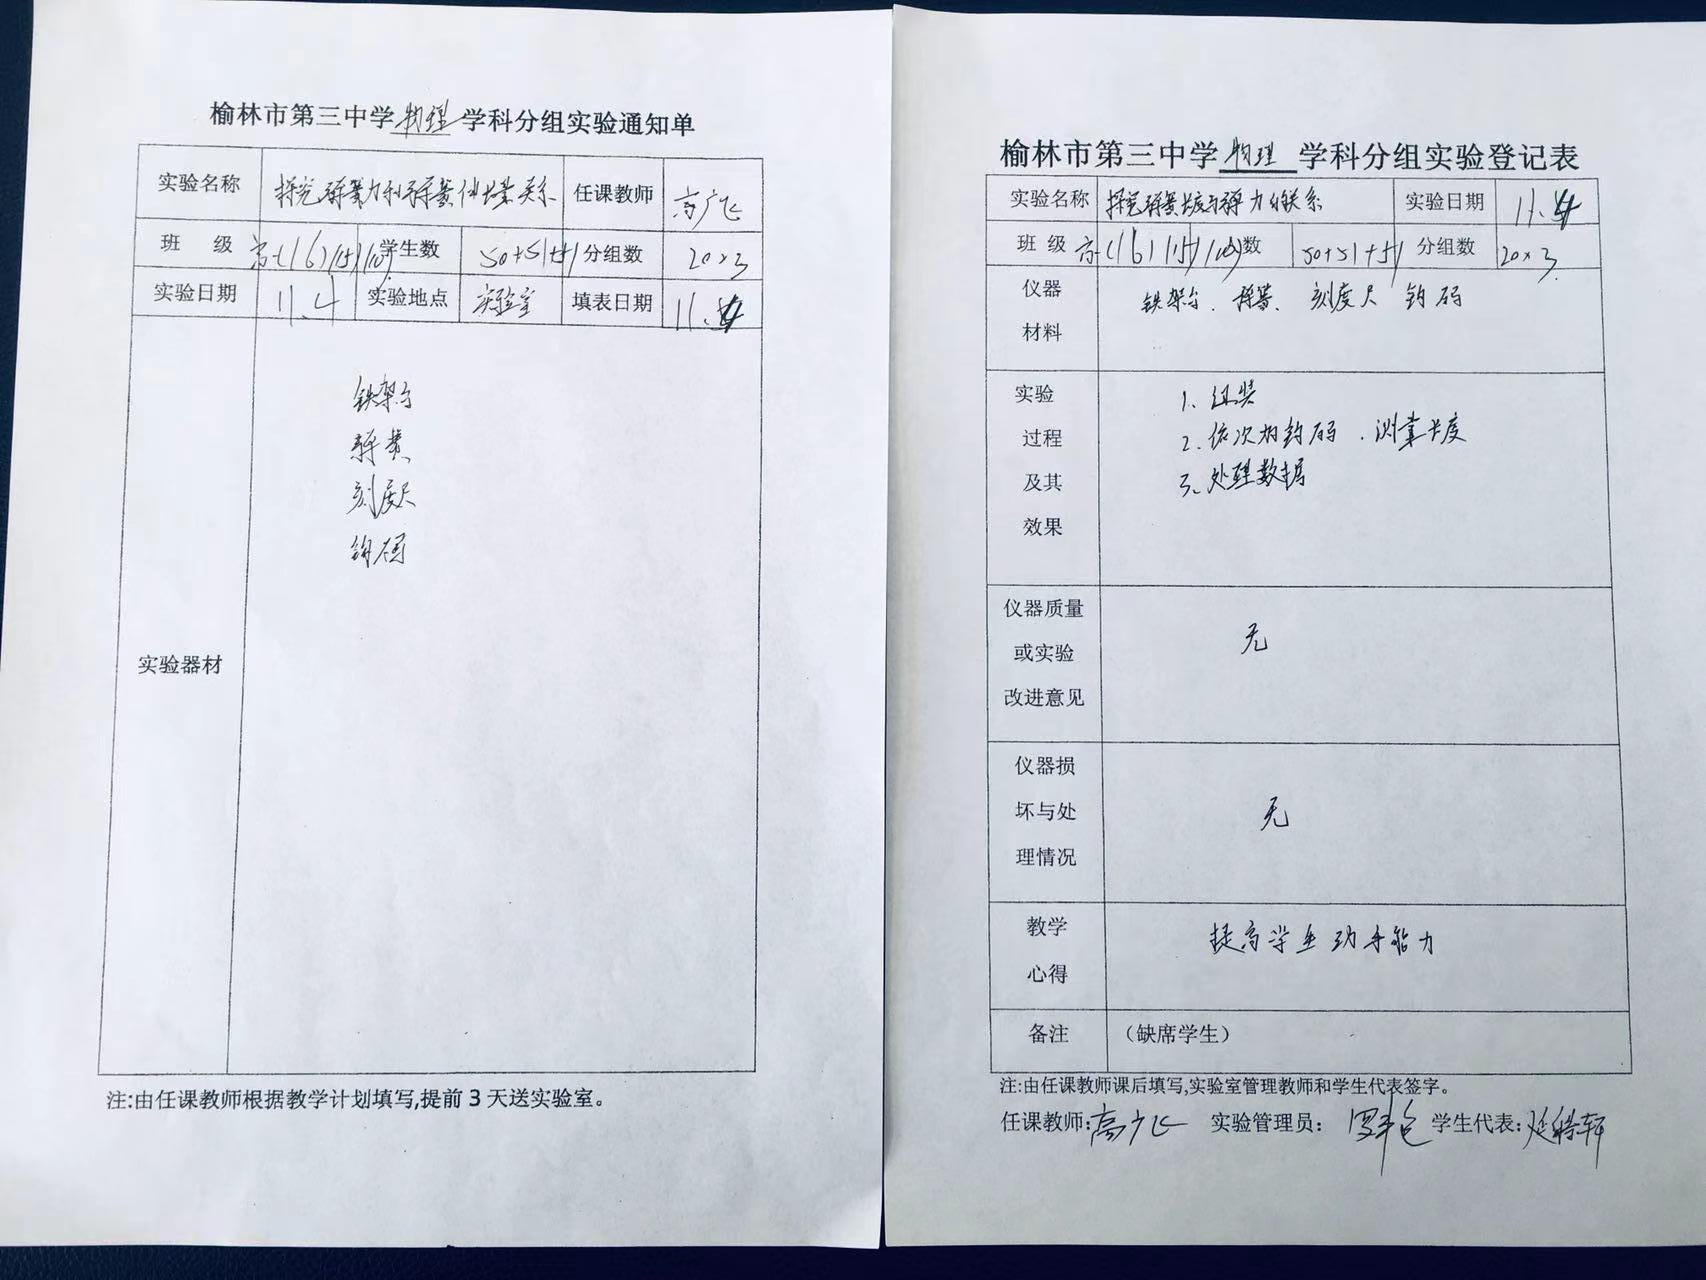 榆林市第三中学物理学科分组实验通知单
实验名称 探究弹簧力和弹簧伸长量关系 任课教师 高广飞
班 级 高一(16)(15)(10) 学生数 50+51+51 分组数 20×3
实验日期 11.4 实验地点 实验室 填表日期 11.4
实验器材
铁架台
弹簧
刻度尺
钩码
注:由任课教师根据教学计划填写,提前3天送实验室。
榆林市第三中学物理学科分组实验登记表
实验名称 探究弹簧长度与弹力的关系 实验日期 11.4
班 级 高一(16)(15)(10) 数 50+51+51 分组数 20×3
仪器
材料
铁架台、弹簧、刻度尺 钩码
实验
过程
及其
效果
1、组装
2、依次加钩码、测量长度
3、处理数据
仪器质量
或实验
改进意见
无
仪器损
坏与处
理情况
无
教学
心得
提高学生动手能力
备注 (缺席学生)
注:由任课教师课后填写,实验室管理教师和学生代表签字。
任课教师:高广飞 实验管理员: 学生代表: